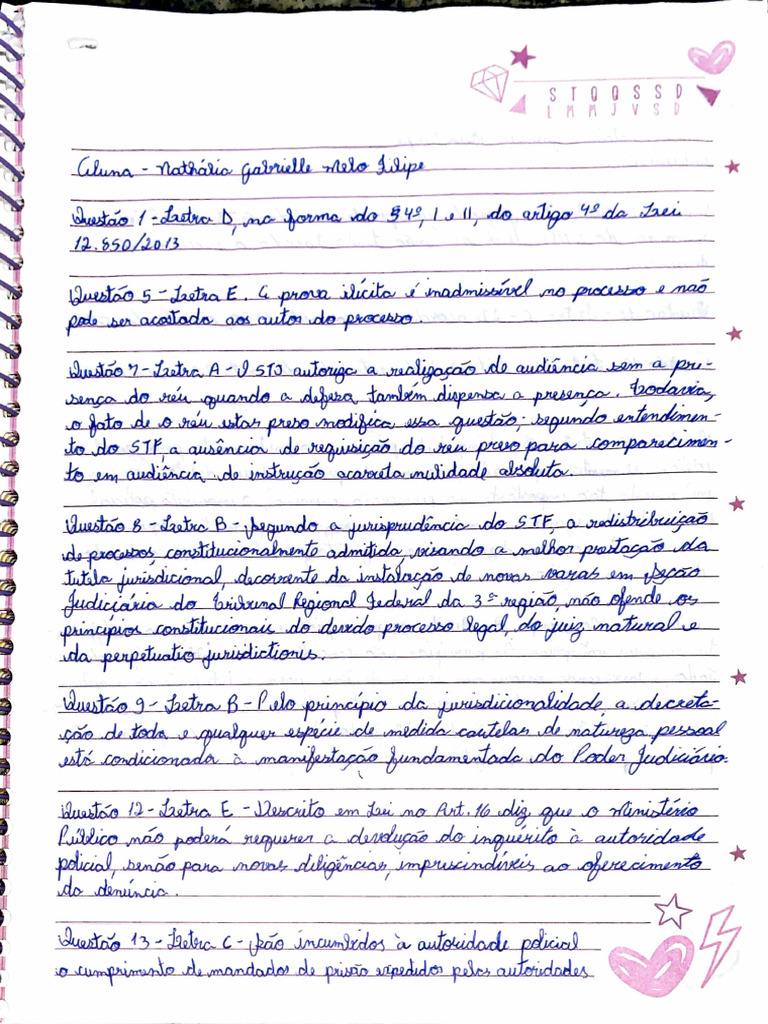 S T Q Q S S D
L M M J V S D
Aluna - Nathália Gabrielle Melo Filipe
Questão 1 - Letra D, na forma do § 4º, I e II, do artigo 4º da Lei
12.850/2013
Questão 5 - Letra E. A prova ilícita é inadmissível no processo e não
pode ser acostada aos autos do processo.
Questão 7 - Letra A - O STJ autoriza a realização de audiência sem a pre-
sença do réu quando a defesa, também dispensa a presença. Todavia,
o fato de o réu estar preso modifica essa questão; segundo entendimen-
to do STF, a ausência de requisição do réu preso para comparecimen-
to em audiência de instrução acarreta nulidade absoluta.
Questão 8 - Letra B - Segundo a jurisprudência do STF, a redistribuição
de processos, constitucionalmente admitida, visando a melhor prestação da
tutela jurisdicional, decorrente da instalação de novas varas em Seção
Judiciária do Tribunal Regional Federal da 3ª região, não ofende os
princípios constitucionais do devido processo legal, do juiz natural e
da perpetuatio jurisdictionis.
Questão 9 - Letra B - Pelo princípio da jurisdicionalidade, a decreta-
ção de toda e qualquer espécie de medida cautelar de natureza pessoal
está condicionada à manifestação fundamentada do Poder Judiciário.
Questão 12 - Letra E - Descrito em Lei no Art. 16 diz que o Ministério
Público não poderá requerer a devolução do inquérito à autoridade
policial, senão para novas diligências, imprescindíveis ao oferecimento
da denúncia.
Questão 13 - Letra C - São incumbidos à autoridade policial
o cumprimento de mandados de prisão expedidos pelas autoridades